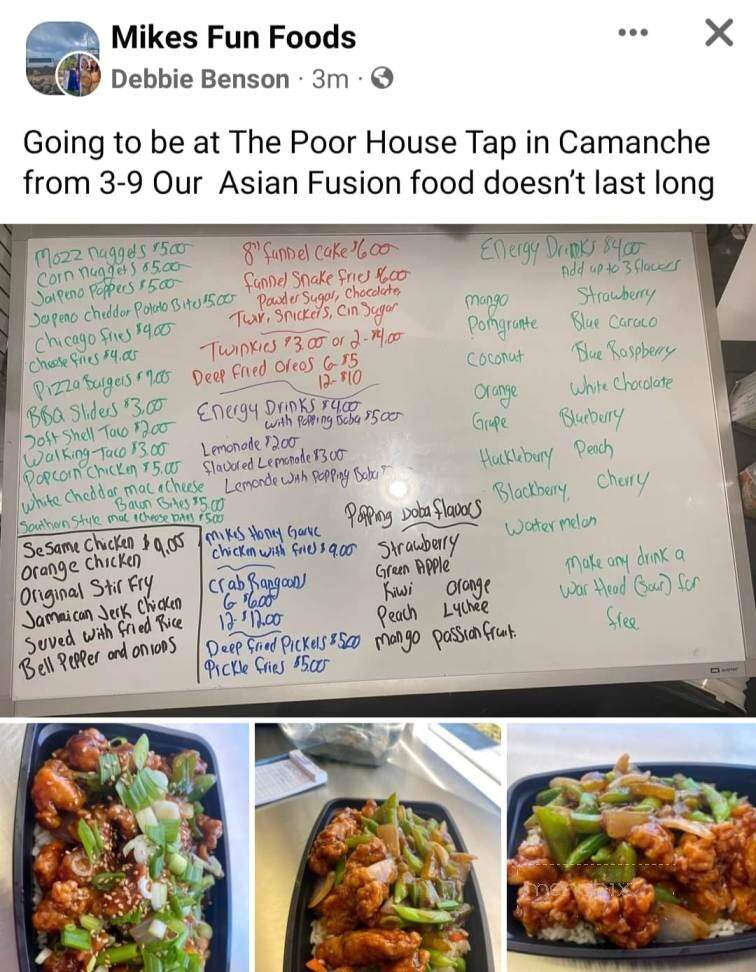 Mikes Fun Foods
Debbie Benson · 3m ·
Going to be at The Poor House Tap in Camanche
from 3-9 Our Asian Fusion food doesn't last long
Mozz Nuggets $5.00
Corn Nuggets $5.00
Jalpeno Poppers $5.00
Jalpeno cheddar Potato Bites $5.00
Chicago fries $4.00
Cheese fries $4.00
Pizza Burgers $7.00
BBQ Sliders $3.00
Soft Shell Taco $2.00
Walking-Taco $3.00
Popcorn Chicken $5.00
White Cheddar mac & Cheese
Bacun Bites $5.00
Southern Style mac & Cheese Bites $5.00
Sesame Chicken $9.00
Orange Chicken
Original Stir Fry
Jamaican Jerk Chicken
Served with Fried Rice
Bell Pepper and onions
8" funnel Cake $6.00
funnel Snake fries $6.00
Powder Sugar, Chocolate,
Twix, Snickers, Cin Sugar
Twinkies $3.00 or 2-$4.00
Deep Fried Oreos 6-$5
12-$10
Energy Drinks $4.00
with Popping Boba $5.00
Lemonade $2.00
flavored Lemonade $3.00
Lemonde with Popping Boba
mikes Honey Garlic
chicken with fries $9.00
Crab Rangoon
6 $6.00
12-$12.00
Deep fried Pickels $5.00
Pickle fries $5.00
Popping Boba flavors
Strawberry
Green Apple
Kiwi Orange
Peach Lychee
mango passion fruit.
Energy Drinks $4.00
Add up to 3 flavors
mango Strawberry
Pomgrante Blue Caraco
Coconut Blue Raspberry
Orange White Chocolate
Grape Blueberry
Hucklebury Peach
Blackberry, Cherry
Watermelon
make any drink a
War Head (Sour) for
free